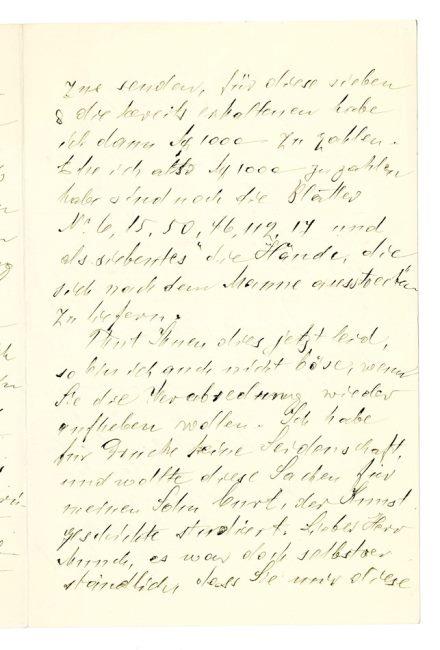 zu senden, für diese sieben
& die bereits erhaltenen habe
ich dann M 1000 zu zahlen.
Ehe ich also M 1000 zu zahlen
habe sind noch die Blätter
No 6, 15, 50, 46, 112, 17 und
als siebentes "die Hände, die
sich nach dem Manne ausstrecken
zu liefern.
Thut Ihnen dies jetzt leid,
so bin ich auch nicht böse, wenn
Sie die Verabredung wieder
aufheben wollen. Ich habe
für Drucke keine Leidenschaft,
und wollte diese Sachen für
meinen Sohn Curt, der Kunst
geschichte studiert. Liebes Herr
Munch, es war doch selbstver
ständlich, dass Sie mir diese